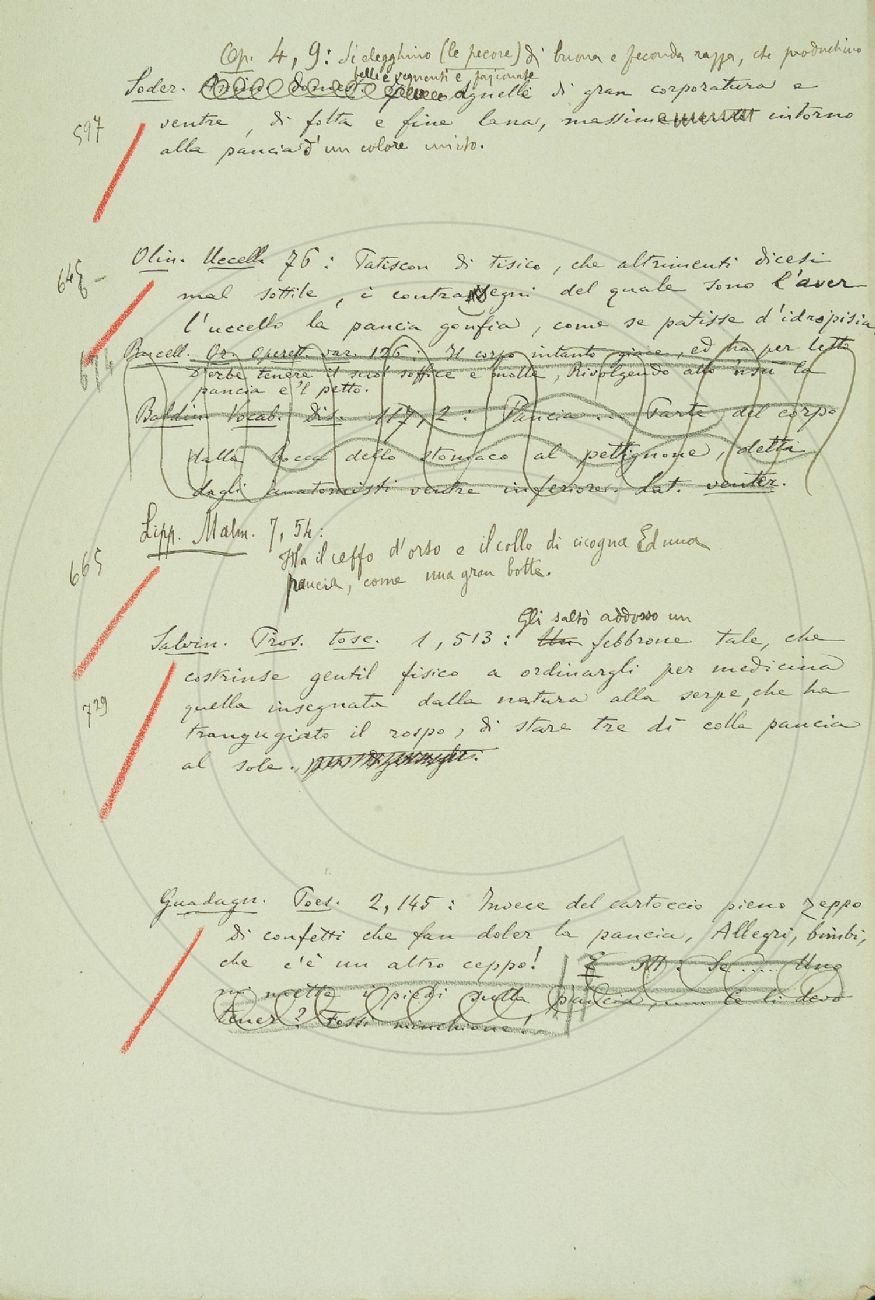 Op. 4, 9: Si elegghino (le pecore) di buona e feconda razza, che produchino
belli e vegnenti e
Soder. agnelli di gran corporatura e
597
ventre, di folta e fine lana, massime intorno
alla pancia d'un colore misto.
645
Olin. Uccell. 76: Patiscon di tisico, che altrimenti dicesi
6
mal sottile, i contrassegni del quale sono l'aver
l'uccello la pancia gonfia, come se patisse d'idropisia
674
Barcell. Operett. var. 126: Il corpo intanto giace, ed ha per letto
D'erbe tenere il suol soffice e molle, Rivolgendo all'insù la
pancia e 'l petto.
Baldin. Vocab. Dis. 117, 2: Pancia... Parte del corpo
dalla bocca dello stomaco al pettignone, detta
dagli anatomisti ventre inferiore. Lat. venter.
Lipp. Malm. 7, 54:
665
Ha il ceffo d'orso e il collo di cicogna Ed una
pancia, come una gran botte.
Gli saltò addosso un
Salvin. Pros. tosc. 1, 513: Un febbrone tale, che
costrinse gentil fisico a ordinargli per medicina
729
quella insegnata dalla natura alla serpe, che ha
trangugiato il rospo, di stare tre dì colla pancia
al sole.
Guadagn. Poes. 2, 145: Invece del cartoccio pieno zeppo
Di confetti che fan doler la pancia, Allegri, bimbi,
che c'è un altro ceppo! E Se.... Uno
mi mette i piedi sulla pancia, .... Ce li devo
tener? Fossi minchione!